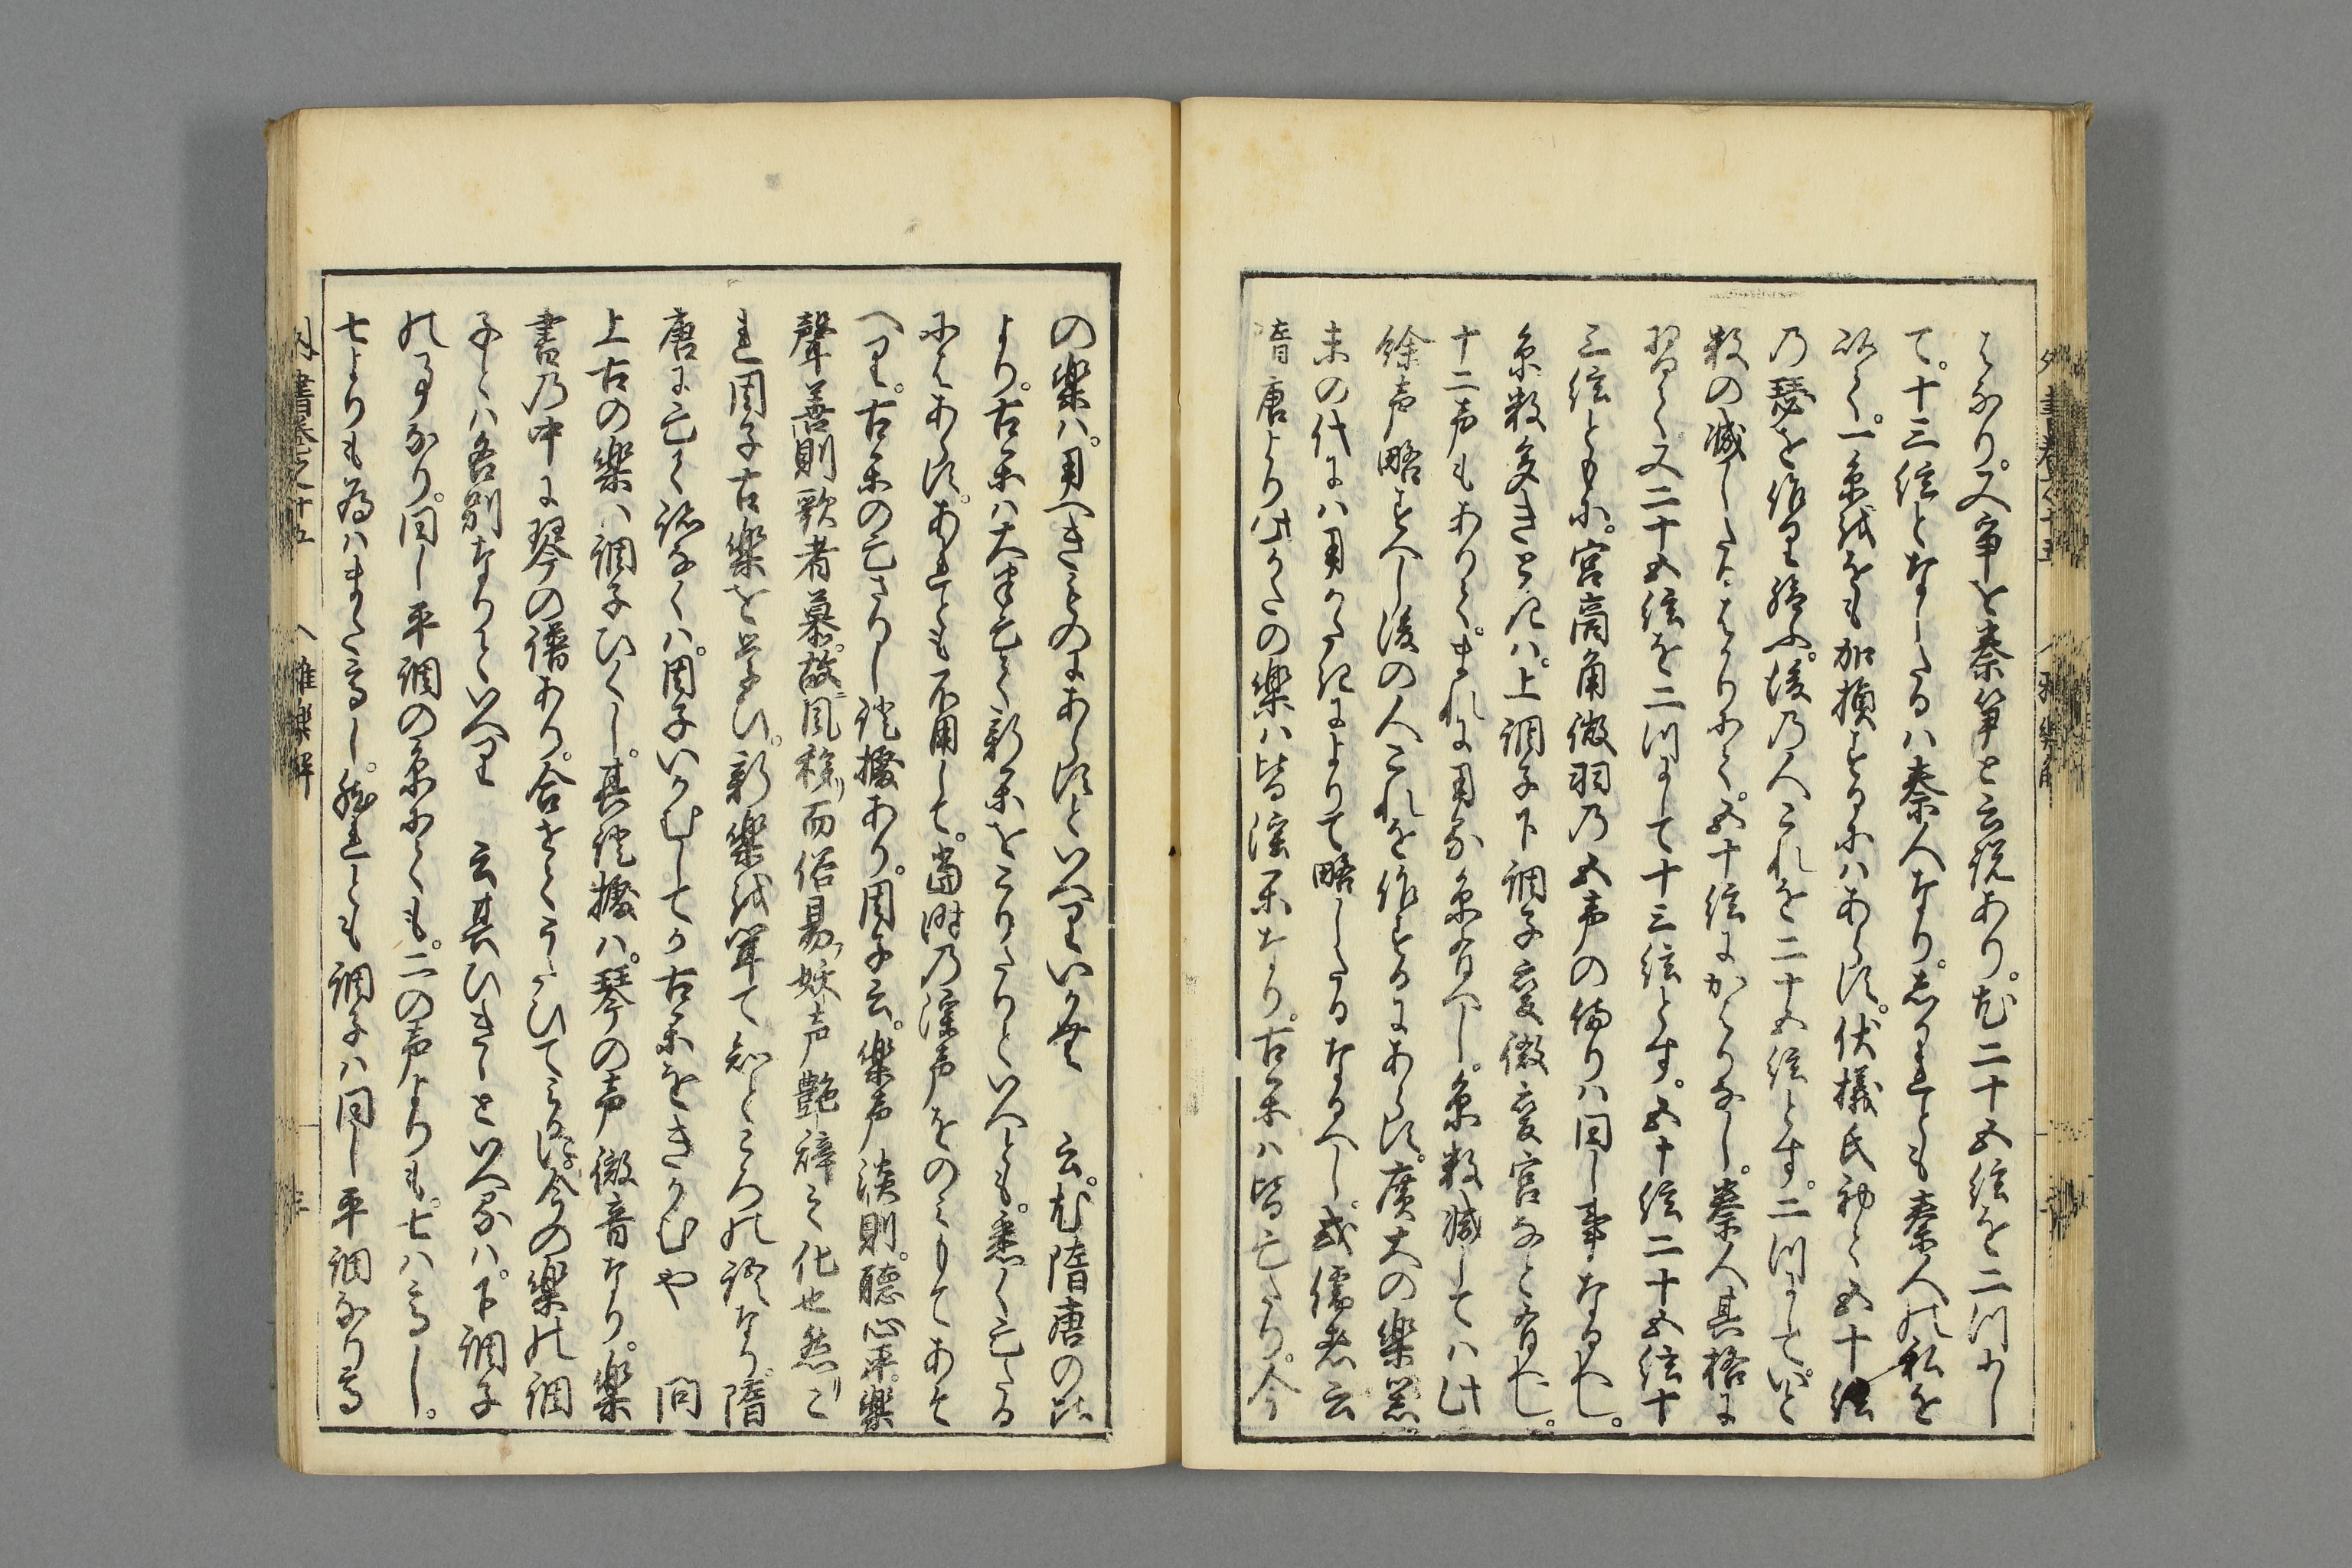 はなり。又箏を秦箏と云説あり。むかし二十五絃を二つにし
て。十三絃となしたるハ秦人なり。しかれとも秦人の私を
以て。一糸をも加損するにハあらす。伏犠氏初て五十絃
乃瑟を作り給ふ。後乃人これを二十五絃とす。二つにして。いと
数の減したるはかりにて。五十絃にかハりなし。秦人其格に
習て又二十五絃を二つにして十三絃とす。五十絃二十五絃十
三絃ともに。宮商角徴羽乃五声の備りハ同し事なるへし。
糸数多きときハ。上調子下調子変徴変宮なと有へし。
十二声もありて。まれに用る糸有へし。糸数減してハ此
餘声略すへし後の人これを作するにあらす。廣大の楽器。
末の代にハ用かたきによりて略したるなるへし。或儒者云
隋唐より此かたの楽ハ皆淫楽なり。古楽ハ皆亡たり。今
の楽ハ。用へきものにあらすといへりいかむ　云。むかし隋唐の比
より。古楽ハ大半亡て新楽をこりたりといへとも。悉く亡たる
にハあらす。あれとも不用して。當時乃淫声をのみもてあそ
へり。古楽の亡さりし證拠あり。周子云。楽声淡則。聴心平。楽
聲善則歌者慕。故風移而俗易。妖声艶辞之化也然。こ
れ周子古楽を学ひ。新楽を聞て知ところの語なり。隋
唐に亡て跡なくハ。周子いかむしてか古楽をきかむや　問
上古の楽ハ調子ひくし。其證拠ハ。琴の声微音なり。楽
書乃中に琴の譜あり。合せてうたひてみるに。今の楽の調
子とハ各別なりといへり　云其ひきしといへるハ。下調子
の事なり。同し平調の糸にても。二の声よりも。七ハ高し。
七よりも為ハまた高し。然れとも調子ハ同し平調なり高